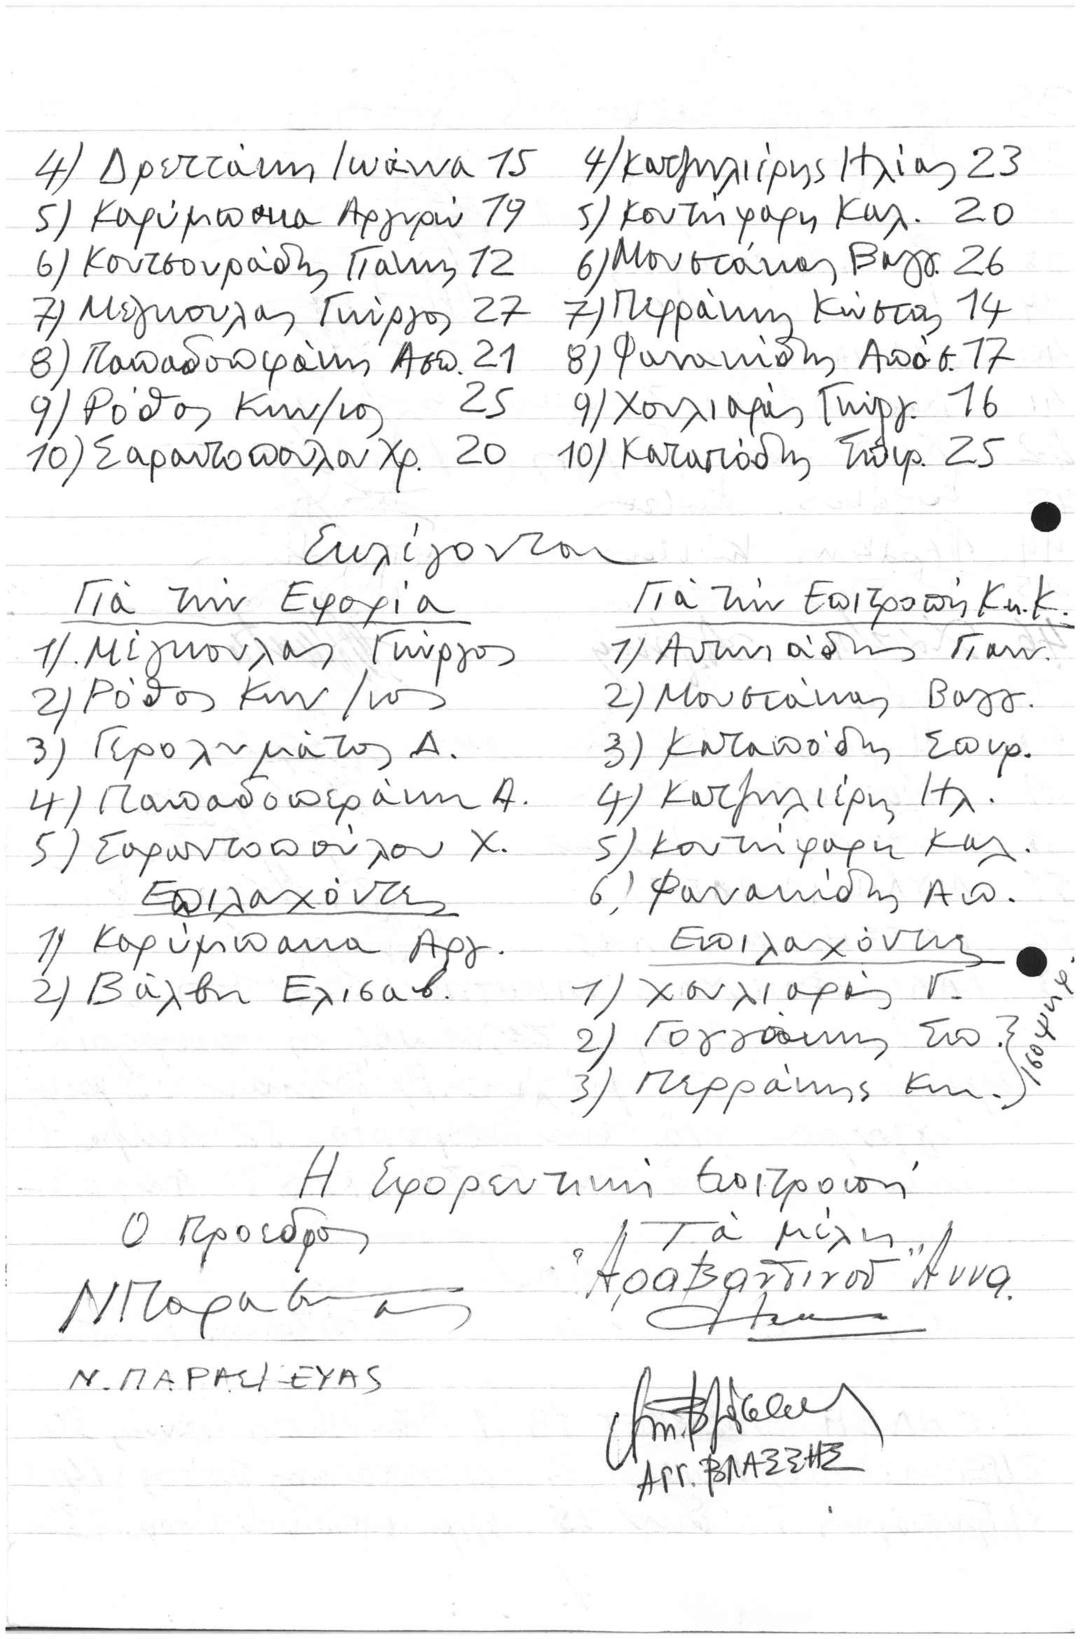 4) Δρεττάκη Ιωάννα 15
5) Καρύμπακα Αργυρώ 19
6) Κουτσουράδης Γιάννης 12
7) Μέγκουλας Γιώργος 27
8) Παπαδοπεράκη Ασπ. 21
9) Ρόθος Κων/νος 25
10) Σαραντοπούλου Χρ. 20
4) Κατζηλιέρης Ηλίας 23
5) Κουτήφαρη Καλ. 20
6) Μουστάκας Βαγγ. 26
7) Περράκης Κώστας 14
8) Φανακίδης Απόσ. 17
9) Χουλιαράς Γιώργ. 16
10) Καταπόδης Σπυρ. 25
Εκλέγονται
Γιά την Εφορία
1) Μέγκουλας Γιώργος
2) Ρόθος Κων/νος
3) Γερολυμάτος Δ.
4) Παπαδοπεράκη Α.
5) Σαραντοπούλου Χ.
Επιλαχόντες
1) Καρύμπακα Αργ.
2) Βάλβη Ελισαβ.
Γιά την Επιτροπή Κ.κ.Κ.
1) Αντωνιάδης Γιαν.
2) Μουστάκας Βαγγ.
3) Καταπόδης Σπυρ.
4) Κατζηλιέρη Ηλ.
5) Κουτήφαρη Καλ.
6) Φανακίδης Απ.
Επιλαχόντες
1) Χουλιαράς Γ.
2) Γογγάκης Σπ.
3) Περράκης Κω.
ισοψηφ.
Η Εφορευτική Επιτροπή
Ο Πρόεδρος
Ν. ΠΑΡΑΣΚΕΥΑΣ
Τά μέλη
"Αραβαντινού" Άννα
Αργ. ΒΛΑΣΣΗΣ